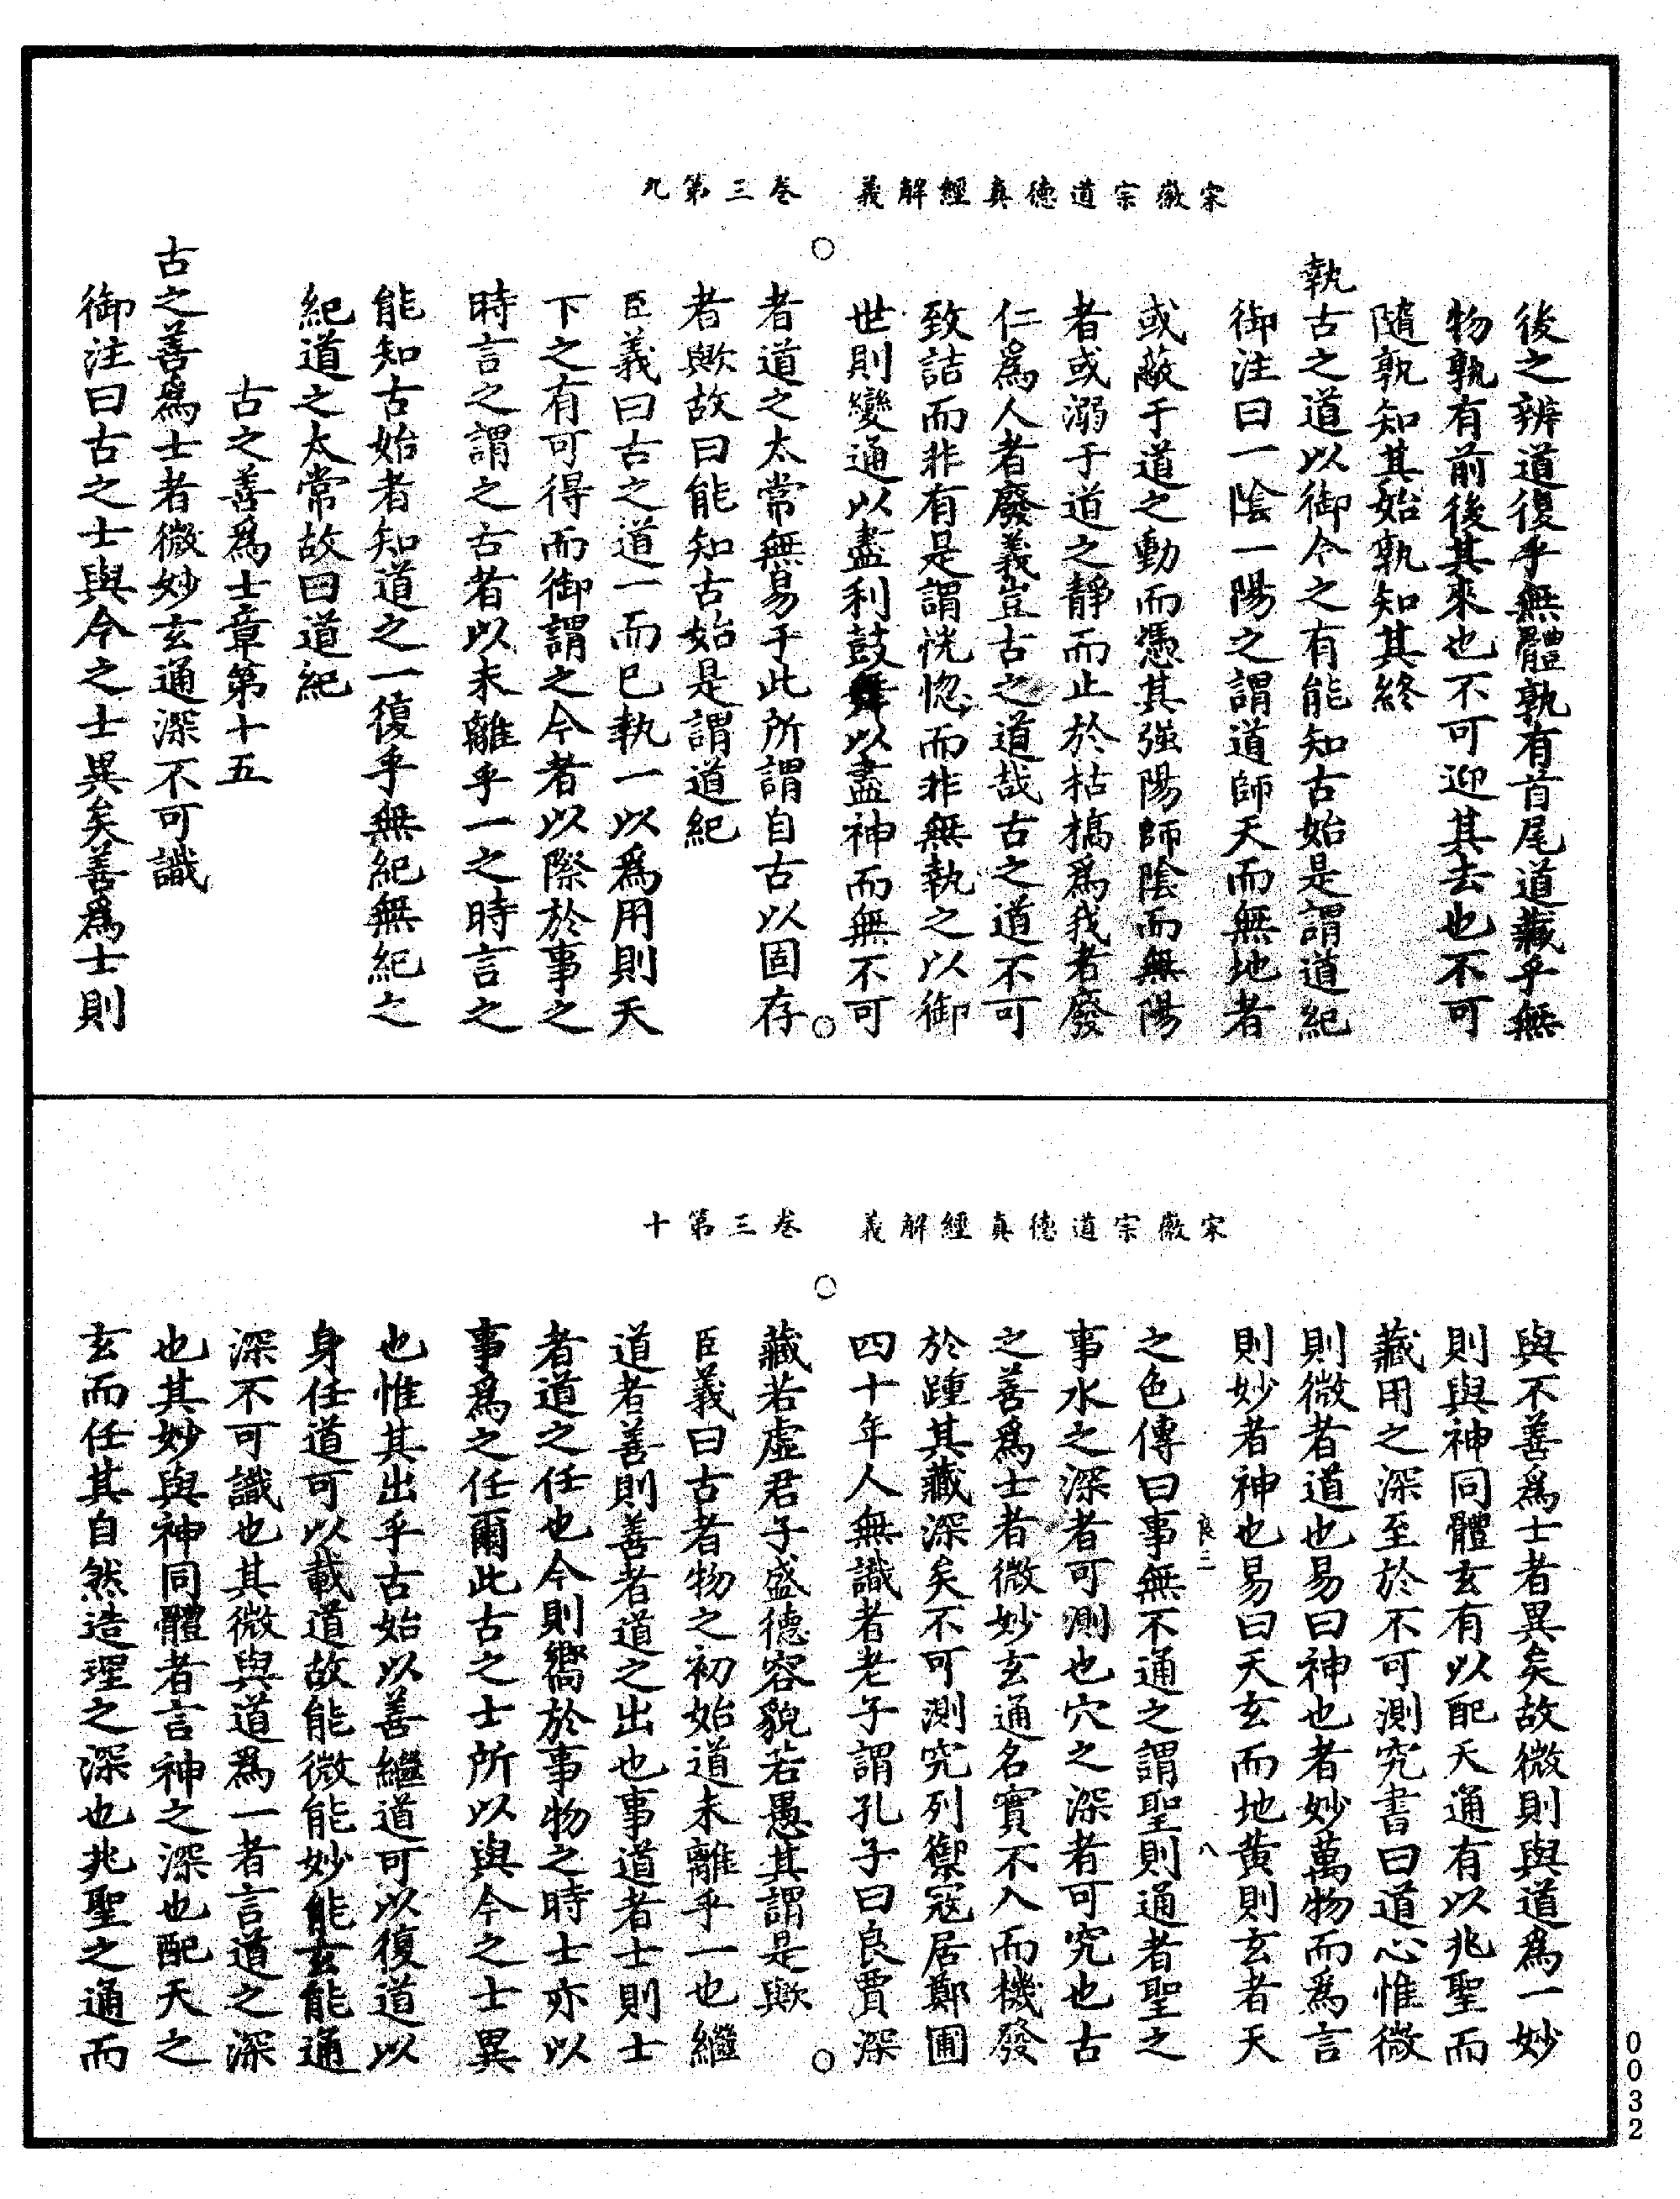 宋徽宗道德真經解義　卷三第九
後之辨道復乎無體孰有首尾道藏乎無
物孰有前後其來也不可迎其去也不可
隨孰知其始孰知其終
執古之道以御今之有能知古始是謂道紀
御注曰一陰一陽之謂道師天而無地者
或蔽于道之動而憑其强陽師陰而無陽
者或溺于道之靜而止於枯槁爲我者廢
仁爲人者廢義豈古之道哉古之道不可
致詰而非有是謂恍惚而非無執之以御
世則變通以盡利鼓舞以盡神而無不可
者道之太常無易于此所謂自古以固存
者歟故曰能知古始是謂道紀
臣義曰古之道一而已執一以爲用則天
下之有可得而御謂之今者以際於事之
時言之謂之古者以未離乎一之時言之
能知古始者知道之一復乎無紀無紀之
紀道之太常故曰道紀
古之善爲士章第十五
古之善爲士者微妙玄通深不可識
御注曰古之士與今之士異矣善爲士則
宋徽宗道德真經解義　卷三第十
與不善爲士者異矣故微則與道爲一妙
則與神同體玄有以配天通有以兆聖而
藏用之深至於不可測究書曰道心惟微
則微者道也易曰神也者妙萬物而爲言
則妙者神也易曰天玄而地黄則玄者天
良三　八
之色傳曰事無不通之謂聖則通者聖之
事水之深者可測也穴之深者可究也古
之善爲士者微妙玄通名實不入而機發
於踵其藏深矣不可測究列禦寇居鄭圃
四十年人無識者老子謂孔子曰良賈深
藏若虛君子盛德容貌若愚其謂是歟
臣義曰古者物之初始道未離乎一也繼
道者善則善者道之出也事道者士則士
者道之任也今則嚮於事物之時士亦以
事爲之任爾此古之士所以與今之士異
也惟其出乎古始以善繼道可以復道以
身任道可以載道故能微能妙能玄能通
深不可識也其微與道爲一者言道之深
也其妙與神同體者言神之深也配天之
玄而任其自然造理之深也兆聖之通而
0032